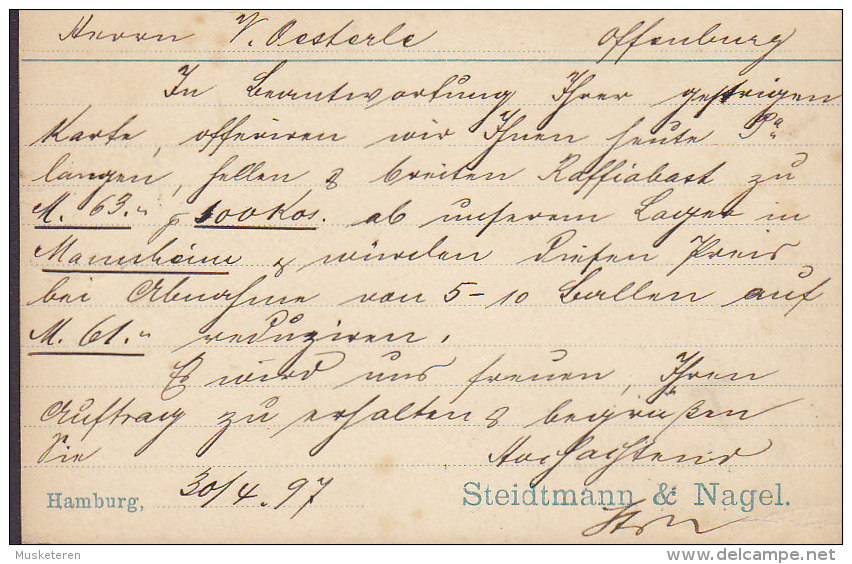 Herrn V. Oesterle Offenburg
In Beantwortung Ihrer gestrigen
Karte, offeriren wir Ihnen heute Pa
langen, hellen & breiten Raffiabast zu
M. 63.- p 100 Kos. ab unserem Lager in
Mannheim & würden diesen Preis
bei Abnahme von 5-10 Ballen auf
M. 61.- reduziren.
Es wird uns freuen, Ihren
Auftrag zu erhalten & begrüßen
Sie Hochachtend
Hamburg, 30/4.97 Steidtmann & Nagel.
Musketeren
www.delcampe.net